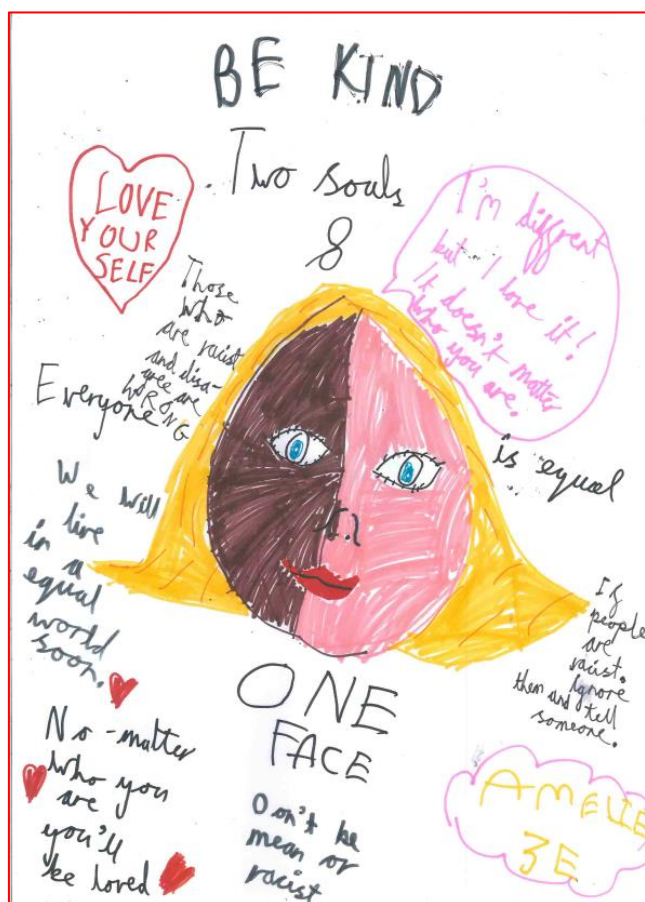 BE KIND
Two souls
&
LOVE
YOUR
SELF
I'm diffrent
but I love it!
It doesn't matter
who you are.
Those
who
are racist
and disa-
gree are
WRONG
Everyone
is equal
We will
live
in a
equal
world
soon.
If
people
are
racist.
Ignore
them and tell
someone.
ONE
FACE
No-matter
who you
are
you'll
be loved
Don't be
mean or
racist
AMELIE
3E